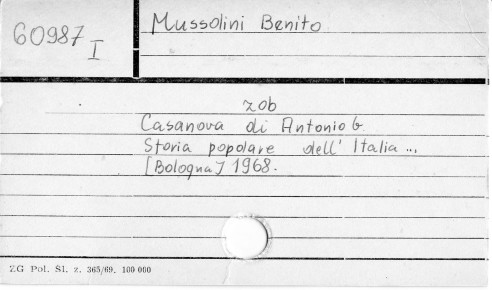 60987
I
Mussolini Benito
zob
Casanova di Antonio G
Storia popolare dell' Italia ...
[Bologna] 1968.
ZG Pol. Śl. z. 365/69. 100 000